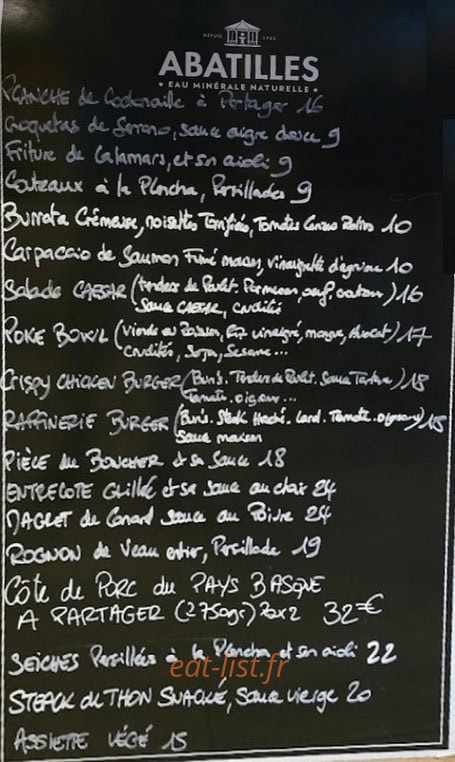 DEPUIS 1925
ABATILLES
• EAU MINÉRALE NATURELLE •
PLANCHE de Cochonaille à Partager 16
Croquetas de Serrano, sauce aigre douce 9
Friture de Calamars, et sn aioli 9
Couteaux à la Plancha, Persillades 9
Burrata Crémeuse, noisettes Torrifiées, Tomates 10
Carpaccio de Saumon Fumé maison, vinaigrette d'agrume 10
Salade CAESAR (Tenders de Poulet. Parmesan, oeuf, croutons) 16
Sauce CAESAR, crudités
POKE BOWL (Viande ou Poisson, Riz vinaigré, mangue, Avocat) 17
Crudités, Soja, Sesame...
CRISPY CHICKEN BURGER (Bun's. Tenders de Poulet. Sauce Tartare) 18
Tomate. oignon...
RAFFINERIE BURGER (Bun's. Steak Haché. Lard. Tomate. oignons) 18
Sauce maison
PIÈCE du BOUCHER et sa Sauce 18
ENTRECOTE GRILLÉE et sa sauce au choix 24
MAGRET de Canard sauce au Poivre 24
ROGNON de Veau entier, Persillade 19
Côte de PORC du PAYS BASQUE
A PARTAGER (± 750grs) Pax2 32€
SEICHES Persillées à la Plancha et sn aioli 22
eat-list.fr
STEACK de THON SNACKÉ, sauce vierge 20
ASSIETTE VÉGÉ 15